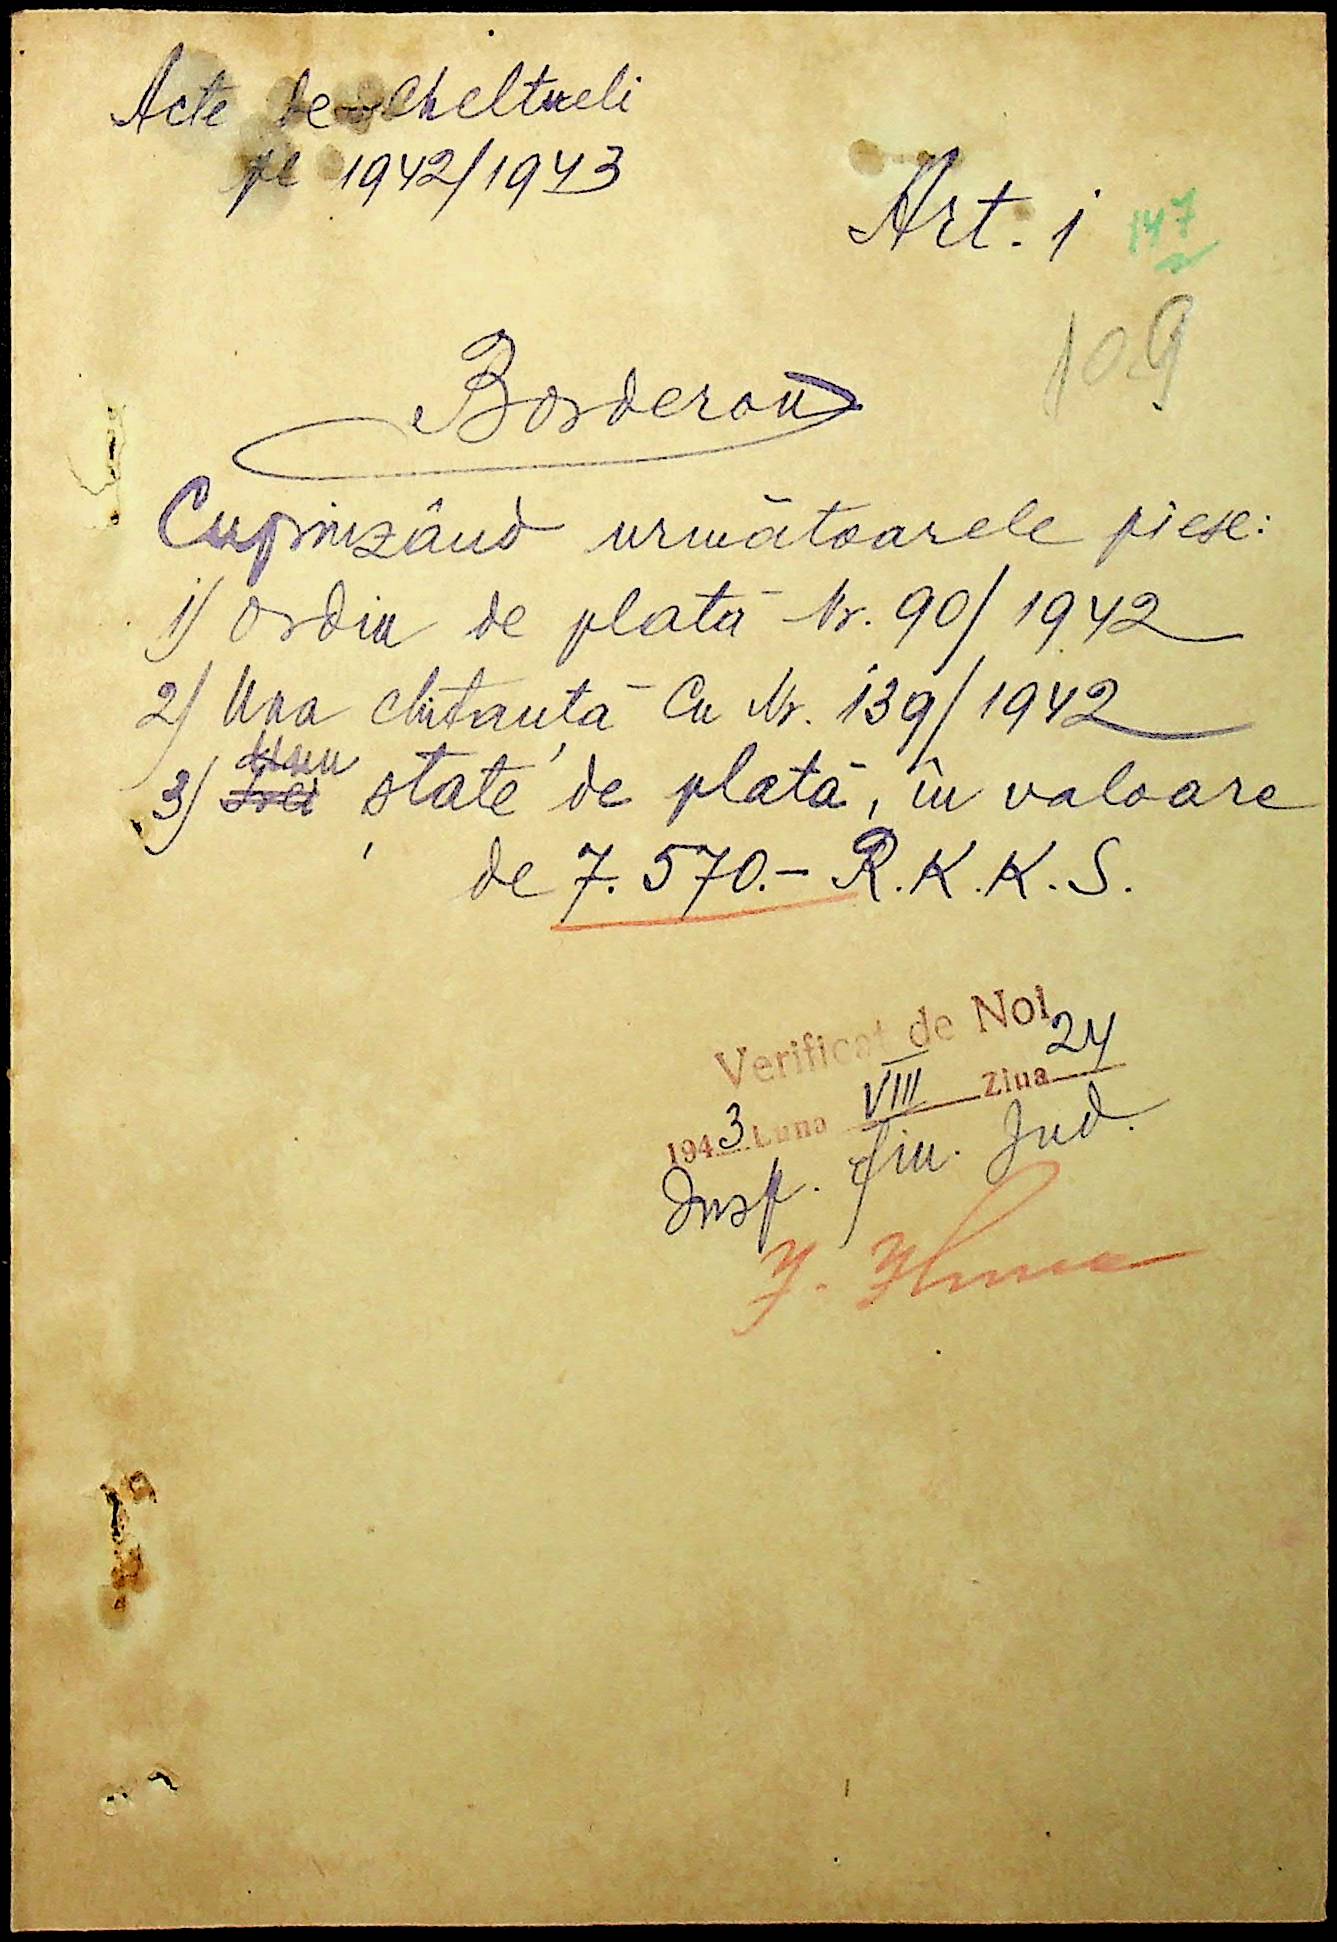 Acte de cheltueli
pe 1942/1943
Art. 1 147
109
Borderou
Cuprinzând următoarele piese:
1) Ordin de plată Nr. 90/1942
2) Una chitanță Cu Nr. 139/1942
3) state de plată, în valoare
de 7.570.- R.K.K.S.
Verificat de Noi
1943 Luna VIII Ziua 24
Insp. fin. Jud.